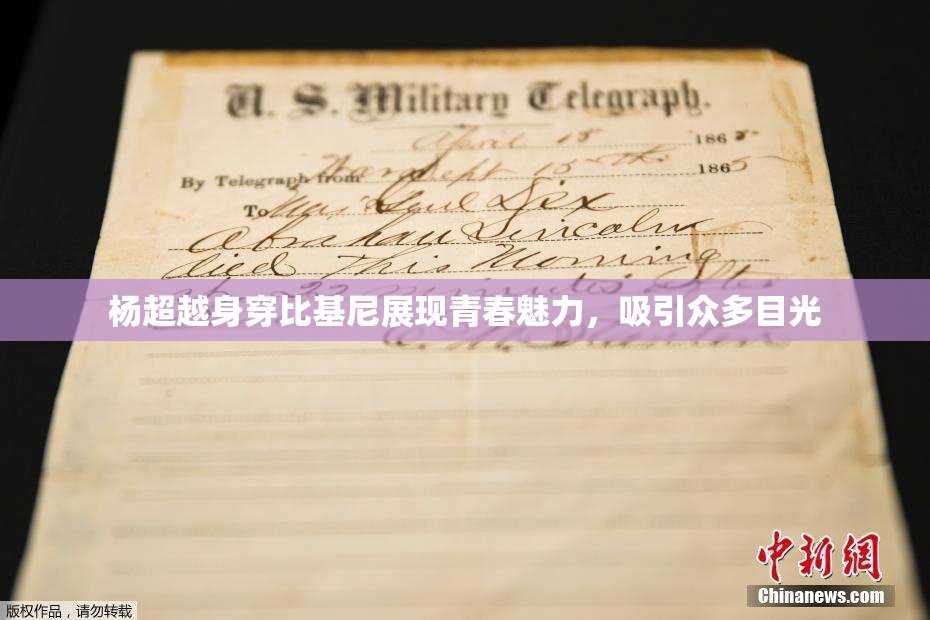 U. S. Military Telegraph.
April 15 1865
By Telegraph from War Dept 15th 1865
To Maj Genl Dix
Abraham Lincoln
died This Morning
22 minutes after
杨超越身穿比基尼展现青春魅力，吸引众多目光
E. M. Stanton
中新网
Chinanews.com
版权作品，请勿转载